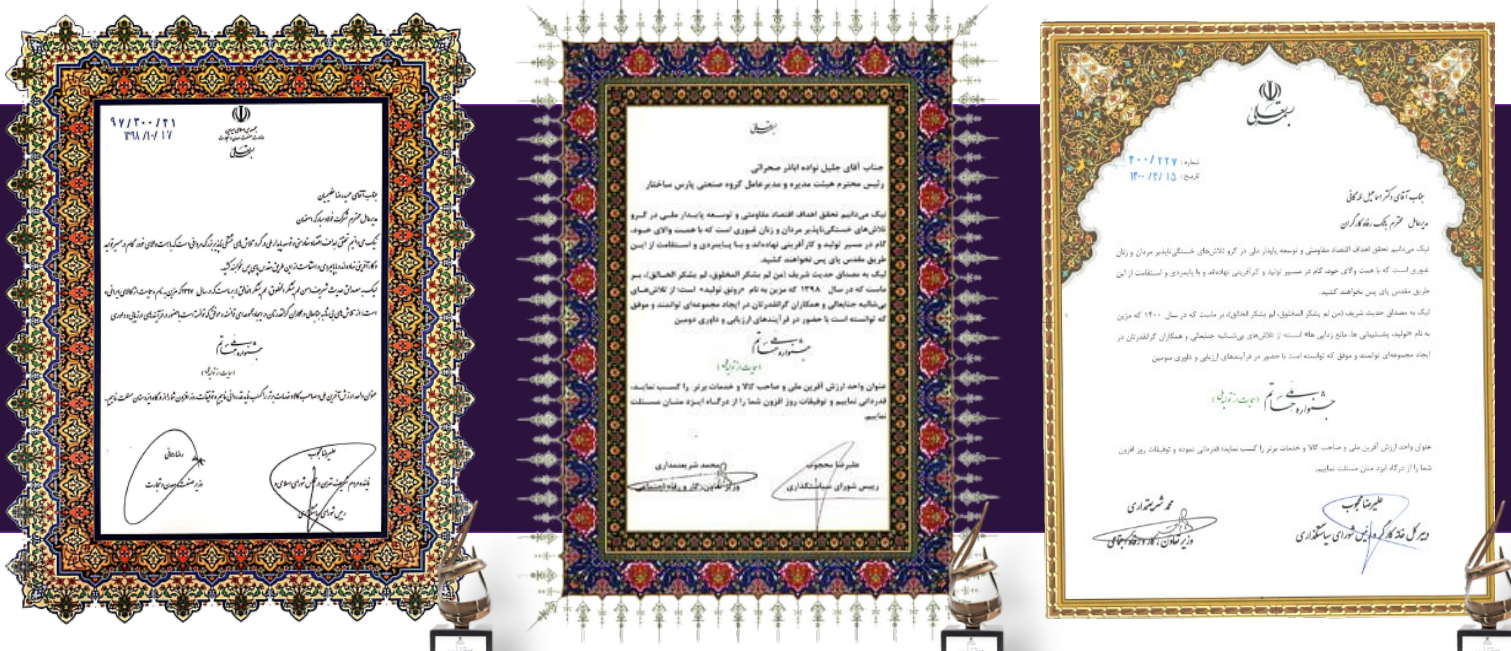 ۹۷/۳۰۰/۴۱
۱۳۹۸/۱۰/۱۷
جمهوری اسلامی ایران
وزارت صنعت، معدن و تجارت
بسمه تعالی
جناب آقای حمیدرضا عظیمیان
مدیرعامل محترم شرکت فولاد مبارکه اصفهان
نیک می‌دانیم تحقق اهداف اقتصاد مقاومتی و توسعه پایدار ملی در گرو تلاش‌های خستگی ناپذیر بزرگ مردانی است که با همت والای خود، گام در مسیر تولید
و کارآفرینی نهاده‌اند و با پایمردی و استقامت از این طریق مقدس پای پس نخواهند کشید.
لیک به مصداق حدیث شریف (من لم یشکر المخلوق، لم یشکر الخالق) بر ماست که در سال ۱۳۹۷ که مزین به نام «حمایت از کالای ایرانی»
است؛ از تلاش‌های بی شائبه جنابعالی و همکاران گرانقدرتان در ایجاد مجموعه‌ای توانمند و موفق که توانسته است با حضور در فرآیندهای ارزیابی و داوری
جشنواره ملی حاتم
(حمایت از تولید ملی)
عنوان واحد ارزش آفرین ملی و صاحب کالا و خدمات برتر را کسب نماید، قدردانی نماییم و توفیقات روز افزون شما را از درگاه ایزد منان مسئلت نماییم.
علیرضا محجوب
نماینده مردم شریف تهران در مجلس شورای اسلامی و
رییس شورای سیاستگذاری
رضا رحمانی
وزیر صنعت، معدن و تجارت
بسمه تعالی
جناب آقای جلیل نواده اباذر صحرائی
رئیس محترم هیئت مدیره و مدیرعامل گروه صنعتی پارس ساختار
نیک می‌دانیم تحقق اهداف اقتصاد مقاومتی و توسعه پایدار ملی در گرو
تلاش‌های خستگی‌ناپذیر مردان و زنان غیوری است که با همت والای خود،
گام در مسیر تولید و کارآفرینی نهاده‌اند و با پایمردی و استقامت از این
طریق مقدس پای پس نخواهند کشید.
لیک به مصداق حدیث شریف (من لم یشکر المخلوق، لم یشکر الخالق)، بر
ماست که در سال ۱۳۹۸ که مزین به نام «رونق تولید» است؛ از تلاش‌های
بی‌شائبه جنابعالی و همکاران گرانقدرتان در ایجاد مجموعه‌ای توانمند و موفق
که توانسته است با حضور در فرآیندهای ارزیابی و داوری دومین
جشنواره ملی حاتم
(حمایت از تولید ملی)
عنوان واحد ارزش آفرین ملی و صاحب کالا و خدمات برتر را کسب نماید،
قدردانی نماییم و توفیقات روز افزون شما را از درگاه ایزد منان مسئلت
نماییم.
علیرضا محجوب
رییس شورای سیاستگذاری
محمد شریعتمداری
وزیر تعاون، کار و رفاه اجتماعی
بسمه تعالی
شماره: ۴۰۰/۲۲۷
تاریخ: ۱۴۰۰/۴/۱۵
جناب آقای دکتر اسماعیل لله گانی
مدیرعامل محترم بانک رفاه کارگران
نیک می‌دانیم تحقق اهداف اقتصاد مقاومتی و توسعه پایدار ملی در گرو تلاش‌های خستگی‌ناپذیر مردان و زنان
غیوری است که با همت والای خود، گام در مسیر تولید و کارآفرینی نهاده‌اند و با پایمردی و استقامت از این
طریق مقدس پای پس نخواهند کشید.
لیک به مصداق حدیث شریف (من لم یشکر المخلوق، لم یشکر الخالق)، بر ماست که در سال ۱۴۰۰ که مزین
به نام «تولید، پشتیبانی ها، مانع زدایی ها» است؛ از تلاش‌های بی‌شائبه جنابعالی و همکاران گرانقدرتان در
ایجاد مجموعه‌ای توانمند و موفق که توانسته است با حضور در فرآیندهای ارزیابی و داوری سومین
جشنواره ملی حاتم (حمایت از تولید ملی)
عنوان واحد ارزش آفرین ملی و صاحب کالا و خدمات برتر را کسب نماید؛ قدردانی نموده و توفیقات روز افزون
شما را از درگاه ایزد منان مسئلت نماییم.
علیرضا محجوب
دبیرکل خانه کارگر و رئیس شورای سیاستگذاری
محمد شریعتمداری
وزیر تعاون، کار و رفاه اجتماعی